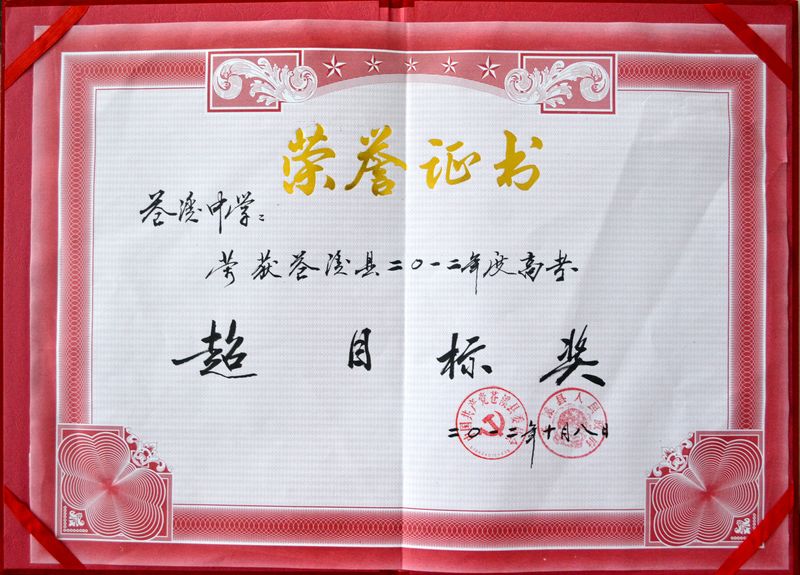 荣誉证书
苍溪中学：
荣获苍溪县二〇一二年度高考
超目标奖
中国共产党苍溪县委员会
溪县人民政府
二〇一二年十月八日